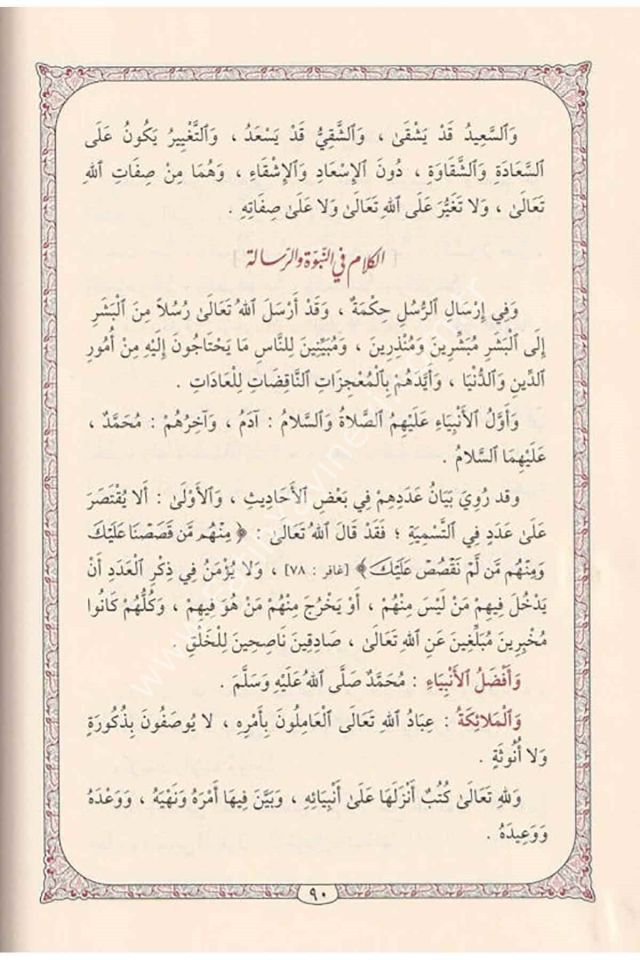 وَٱلسَّعِيدُ قَدْ يَشْقَىٰ ، وَٱلشَّقِيُّ قَدْ يَسْعَدُ ، وَٱلتَّغْيِيرُ يَكُونُ عَلَى
ٱلسَّعَادَةِ وَٱلشَّقَاوَةِ ، دُونَ ٱلإِسْعَادِ وَٱلإِشْقَاءِ ، وَهُمَا مِنْ صِفَاتِ ٱللهِ
تَعَالَىٰ ، وَلاَ تَغَيُّرَ عَلَى ٱللهِ تَعَالَىٰ وَلاَ عَلَىٰ صِفَاتِهِ .
[ الكلام في النبوة والرسالة ]
وَفِي إِرْسَالِ ٱلرُّسُلِ حِكْمَةٌ ، وَقَدْ أَرْسَلَ ٱللهُ تَعَالَىٰ رُسُلاً مِنَ ٱلْبَشَرِ
إِلَى ٱلْبَشَرِ مُبَشِّرِينَ وَمُنْذِرِينَ ، وَمُبَيِّنِينَ لِلنَّاسِ مَا يَحْتَاجُونَ إِلَيْهِ مِنْ أُمُورِ
ٱلدِّينِ وَٱلدُّنْيَا ، وَأَيَّدَهُمْ بِٱلْمُعْجِزَاتِ ٱلنَّاقِضَاتِ لِلْعَادَاتِ .
وَأَوَّلُ ٱلأَنْبِيَاءِ عَلَيْهِمُ ٱلصَّلاَةُ وَٱلسَّلاَمُ : آدَمُ ، وَآخِرُهُمْ : مُحَمَّدٌ ،
عَلَيْهِمَا ٱلسَّلاَمُ .
وقد رُوِيَ بَيَانُ عَدَدِهِمْ فِي بَعْضِ ٱلأَحَادِيثِ ، وَٱلأَوْلَىٰ : أَلاَّ يُقْتَصَرَ
عَلَىٰ عَدَدٍ فِي ٱلتَّسْمِيَةِ ؛ فَقَدْ قَالَ ٱللهُ تَعَالَىٰ : ﴿ مِنْهُم مَّن قَصَصْنَا عَلَيْكَ
وَمِنْهُم مَّن لَّمْ نَقْصُصْ عَلَيْكَ ﴾ [غافر : ٧٨] ، وَلاَ يُؤْمَنُ فِي ذِكْرِ ٱلْعَدَدِ أَنْ
يَدْخُلَ فِيهِمْ مَنْ لَيْسَ مِنْهُمْ ، أَوْ يَخْرُجَ مِنْهُمْ مَنْ هُوَ فِيهِمْ ، وَكُلُّهُمْ كَانُوا
مُخْبِرِينَ مُبَلِّغِينَ عَنِ ٱللهِ تَعَالَىٰ ، صَادِقِينَ نَاصِحِينَ لِلْخَلْقِ .
وَأَفْضَلُ ٱلأَنْبِيَاءِ : مُحَمَّدٌ صَلَّى ٱللهُ عَلَيْهِ وَسَلَّمَ .
وَٱلْمَلاَئِكَةُ : عِبَادُ ٱللهِ تَعَالَى ٱلْعَامِلُونَ بِأَمْرِهِ ، لاَ يُوصَفُونَ بِذُكُورَةٍ
وَلاَ أُنُوثَةٍ .
وَللهِ تَعَالَىٰ كُتُبٌ أَنْزَلَهَا عَلَىٰ أَنْبِيَائِهِ ، وَبَيَّنَ فِيهَا أَمْرَهُ وَنَهْيَهُ ، وَوَعْدَهُ
وَوَعِيدَهُ .
٩٠